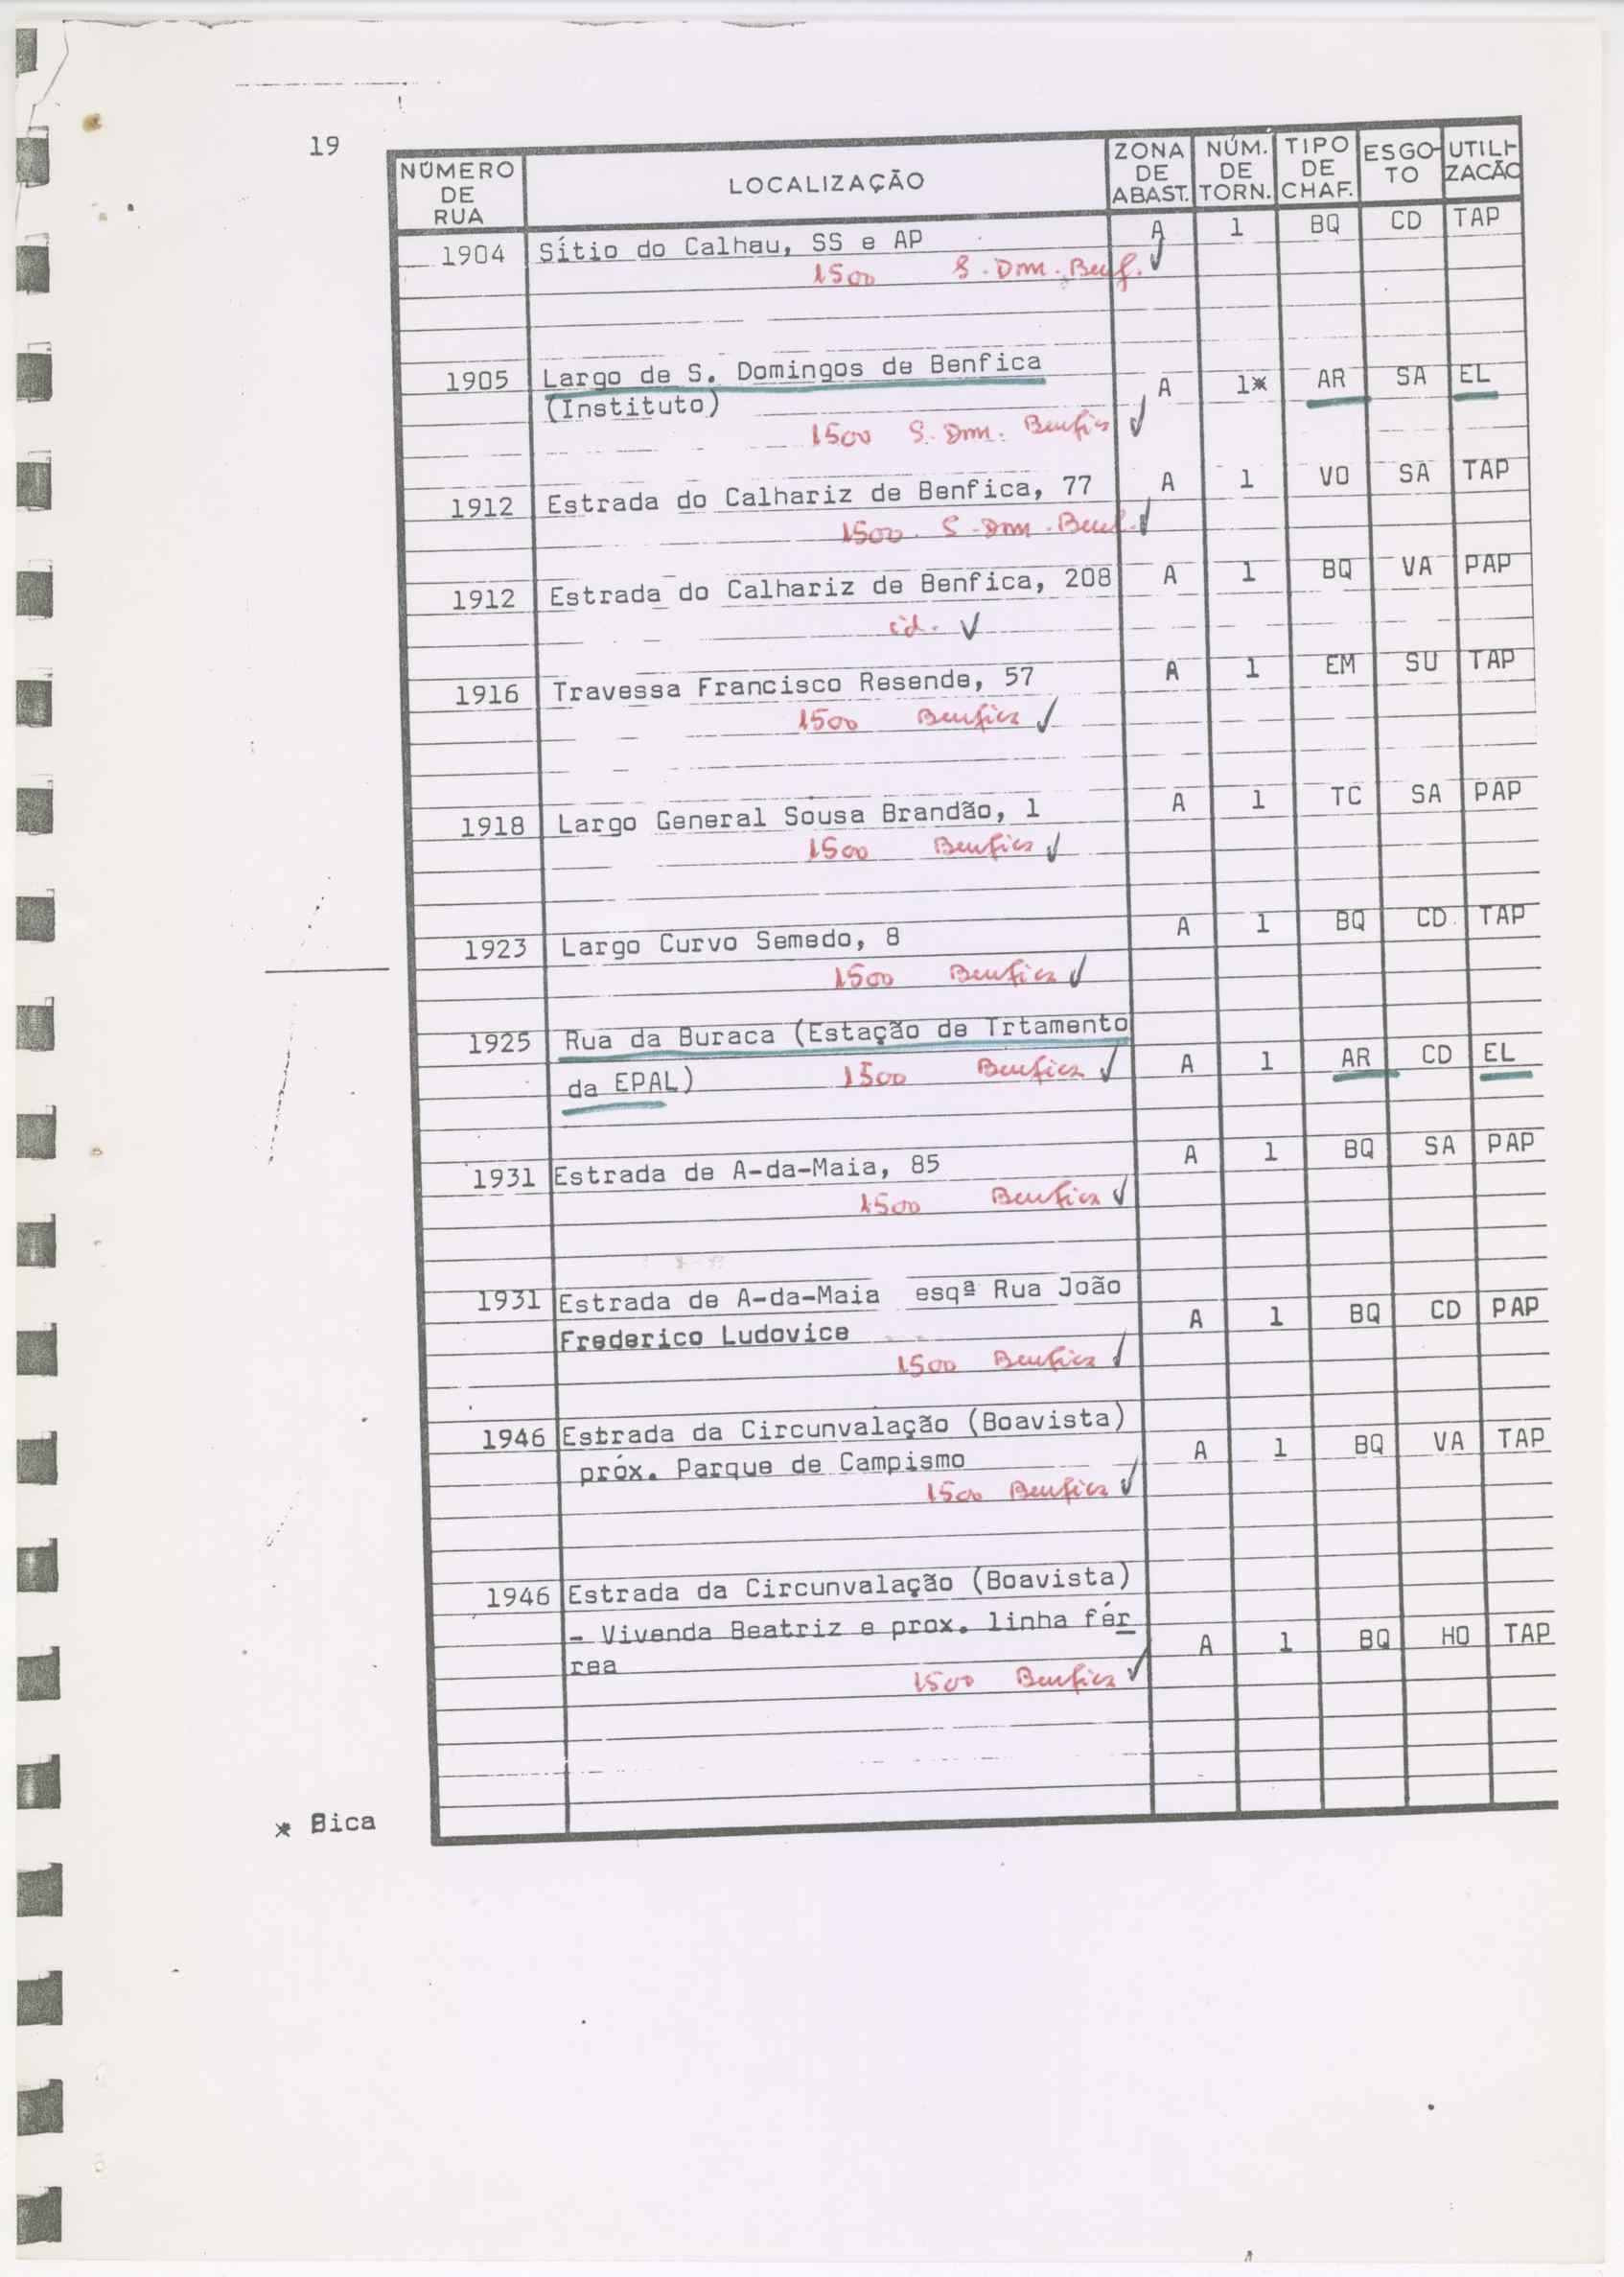 19
NÚMERO DE RUA LOCALIZAÇÃO ZONA DE ABAST. NÚM. DE TORN. TIPO DE CHAF. ESGO-TO UTILI-ZAÇÃO
1904 Sítio do Calhau, SS e AP A 1 BQ CD TAP
1500 S. Dom. Benf. ✓
1905 Largo de S. Domingos de Benfica
(Instituto) A 1* AR SA EL
1500 S. Dom. Benfica ✓
1912 Estrada do Calhariz de Benfica, 77 A 1 VO SA TAP
1500 S. Dom. Benf. ✓
1912 Estrada do Calhariz de Benfica, 208 A 1 BQ VA PAP
id. ✓
1916 Travessa Francisco Resende, 57 A 1 EM SU TAP
1500 Benfica ✓
1918 Largo General Sousa Brandão, 1 A 1 TC SA PAP
1500 Benfica ✓
1923 Largo Curvo Semedo, 8 A 1 BQ CD TAP
1500 Benfica ✓
1925 Rua da Buraca (Estação de Trtamento
da EPAL) 1500 Benfica ✓ A 1 AR CD EL
1931 Estrada de A-da-Maia, 85 A 1 BQ SA PAP
1500 Benfica ✓
1931 Estrada de A-da-Maia esqª Rua João
Frederico Ludovice A 1 BQ CD PAP
1500 Benfica ✓
1946 Estrada da Circunvalação (Boavista)
próx. Parque de Campismo A 1 BQ VA TAP
1500 Benfica ✓
1946 Estrada da Circunvalação (Boavista)
- Vivenda Beatriz e prox. linha fér
rea A 1 BQ HO TAP
1500 Benfica ✓
* Bica